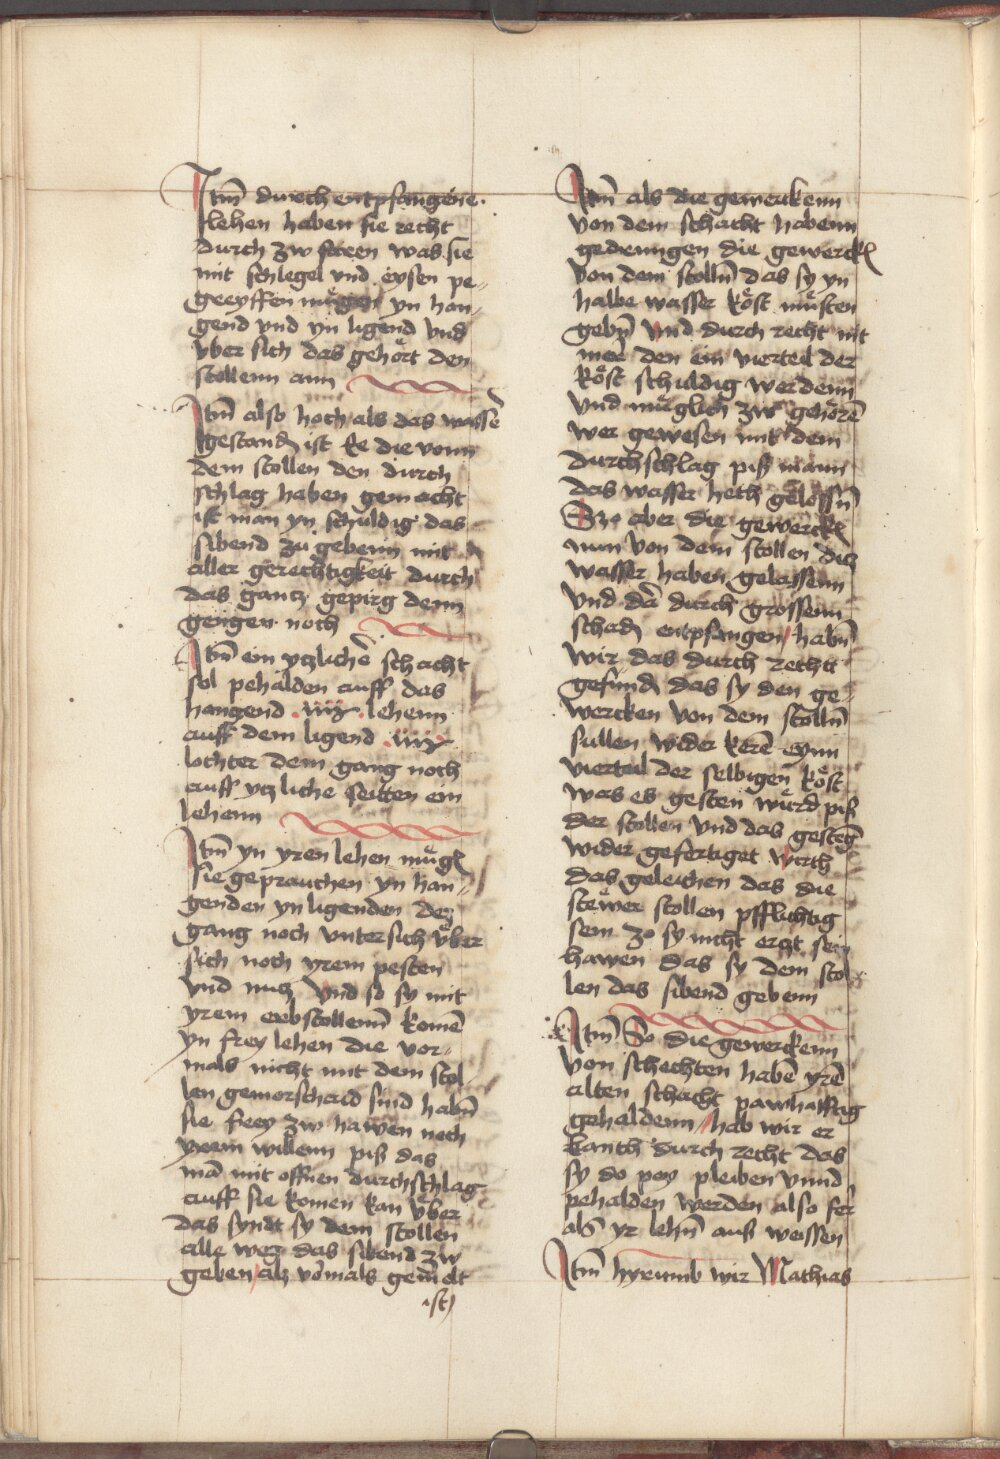 Itm̄ durch entpfangene
lehen haben sie recht
durch zw faren was sie
mit schlegel vnd eysen pe-
greyffen mügen yn han-
gend vnd yn ligend vnd
vber sich das gehört den
stollenn ann
Itm̄ also hoch als das wasser
gestandn̄ ist ee die vonn
dem stollen den durch
schlag haben gemacht
ist man yn schuldig das
sibend zu gebenn mit
aller gerechtigkeit durch
das gantz gepirg denn
gengen noch
Itm̄ ein yczlicher schacht
sol pehalden auff das
hangend .iiij. lehenn
auff dem ligend .iiij.
lochter dem gang noch
auff yczliche seitten ein
lehenn
Itm̄ yn yren lehen mügn̄
sie geprauchen yn han-
genden yn ligenden des
gang noch vntersich vber
sich noch yrem pesten
vnd nucz vnd so sy mit
yrem erbstollenn̄ komē
yn frey lehen die vor-
mals nicht mit dem stol
len gemorschaid sind habn̄
sie frey zw hawen noch
yrem willenn piß das
mā mit offnen durchschlag
auff sie komen kan vber
das syndt sy dem stollen
alle weg das sibend zw
geben als vormals gemelt
ist
Itm̄ als die gewerckenn
von dem schacht habenn
gedrungen die gewerckn̄
von dem stolln̄ das sy yn
halbe wasser köst müsten
gebn̄ vnd durch recht nit
mer den ein vierteil der
köst schuldig werdenn
vnd müglich zw gehörē
wer gewesen mit dem
durchschlag piß mann
das wasser heth gelossn̄
So aber die gewerckn̄
nun von dem stollen das
wasser haben gelassenn
vnd dā durch grossenn
schadn̄ entpfangen habn̄
wir das durch recht
gefundn̄ das sy den ge-
wercken von dem stolln̄
sullen wider kerē eynn
vierteil der selbigen köst
was es gesten würd piß
der stollen vnd das gesteng
wider gefertiget wirth
das geleichen das die
stewer stollen pfflichtig
sein zo sy nicht erczt sein
hawen das sy dem stol
len das sibend gebenn
Itm̄ So die gewerckenn
von schechten habē yrē
alten schacht pawhafftig
gehaldenn hab wir er
kanth durch recht das
sy do pey pleiben vnnd
pehalden werden also fer
als yr lehn̄ auß weissen
Itm̄ hyrumb wir Mathias